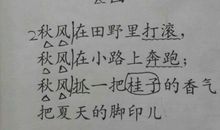 2秋风在田野里打滚，
秋风在小路上奔跑；
秋风抓一把桂子的香气
把夏天的脚印儿